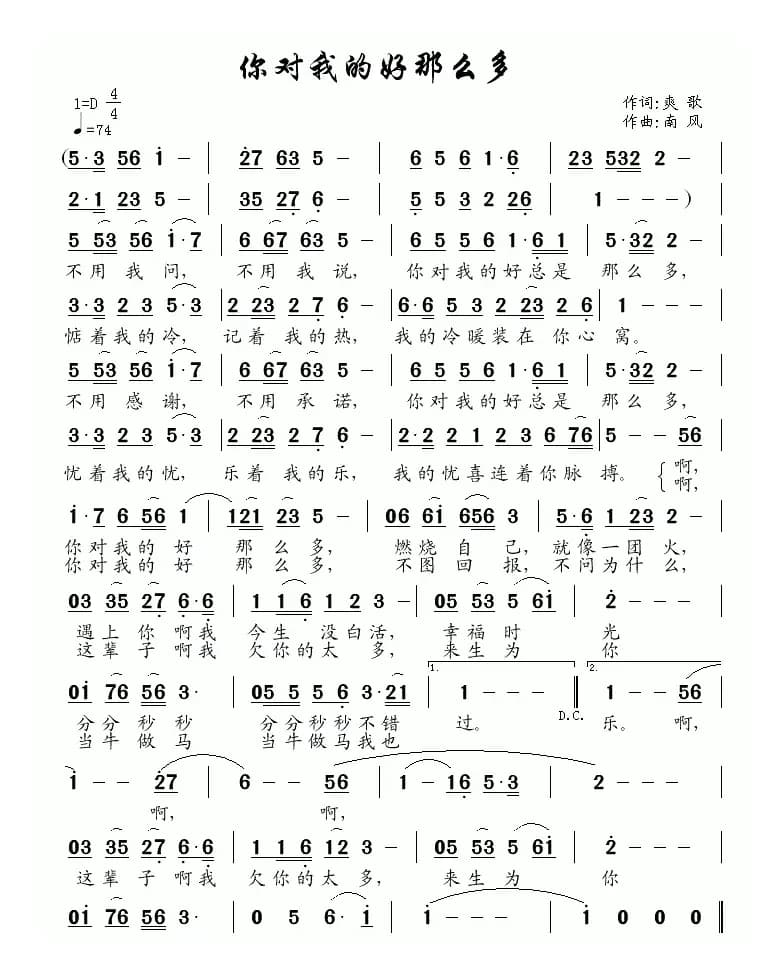 你对我的好那么多
1=D 4/4
♩=74
作词:爽 歌
作曲:南 风
(5·3 56 i - | 27 63 5 - | 6 5 6 1·6 | 23 532 2 - |
2·1 23 5 - | 35 27 6 - | 5 5 3 2 26 | 1 - - ) |
5 53 56 i·7 | 6 67 63 5 - | 6 5 5 6 1·6 1 | 5·32 2 - |
不用我问, 不用我说, 你对我的好总是 那么多,
3·3 2 3 5·3 | 2 23 2 7 6 - | 6·6 5 3 2 23 2 6 | 1 - - |
惦着我的冷, 记着 我的热, 我的冷暖装在 你心 窝。
5 53 56 i·7 | 6 67 63 5 - | 6 5 5 6 1·6 1 | 5·32 2 - |
不用感谢, 不用承诺, 你对我的好总是 那么多,
3·3 2 3 5·3 | 2 23 2 7 6 - | 2·2 2 1 2 3 6 76 | 5 - - 56 |
忧着我的忧, 乐着 我的乐, 我的忧喜连着你脉搏。 啊,
啊,
i·7 6 56 1 | 121 23 5 - | 06 6i 656 3 | 5·6 1 23 2 - |
你对我的 好 那么多, 燃烧自己, 就像一团火,
你对我的 好 那么多, 不图回报, 不问为什么,
03 35 27 6·6 | 1 1 6 1 2 3 - | 05 53 5 6i | 2 - - |
遇上你啊我 今生 没白活, 幸福时 光
这辈子啊我 欠你的太 多, 来生为 你
0i 76 56 3· | 05 5 5 6 3·21 | 1. 1 - - | 2. 1 - - 56 |
D.C.
分分秒秒 分分秒秒不错 过。 乐。 啊,
当牛做马 当牛做马我也
i - 27 | 6 - - 56 | 1 - 16 5·3 | 2 - - - |
啊, 啊,
03 35 27 6·6 | 1 1 6 12 3 - | 05 53 5 6i | 2 - - |
这辈子啊我 欠你的太 多, 来生为 你
0i 76 56 3· | 0 5 6·i | i - - - | i 0 0 0 ‖